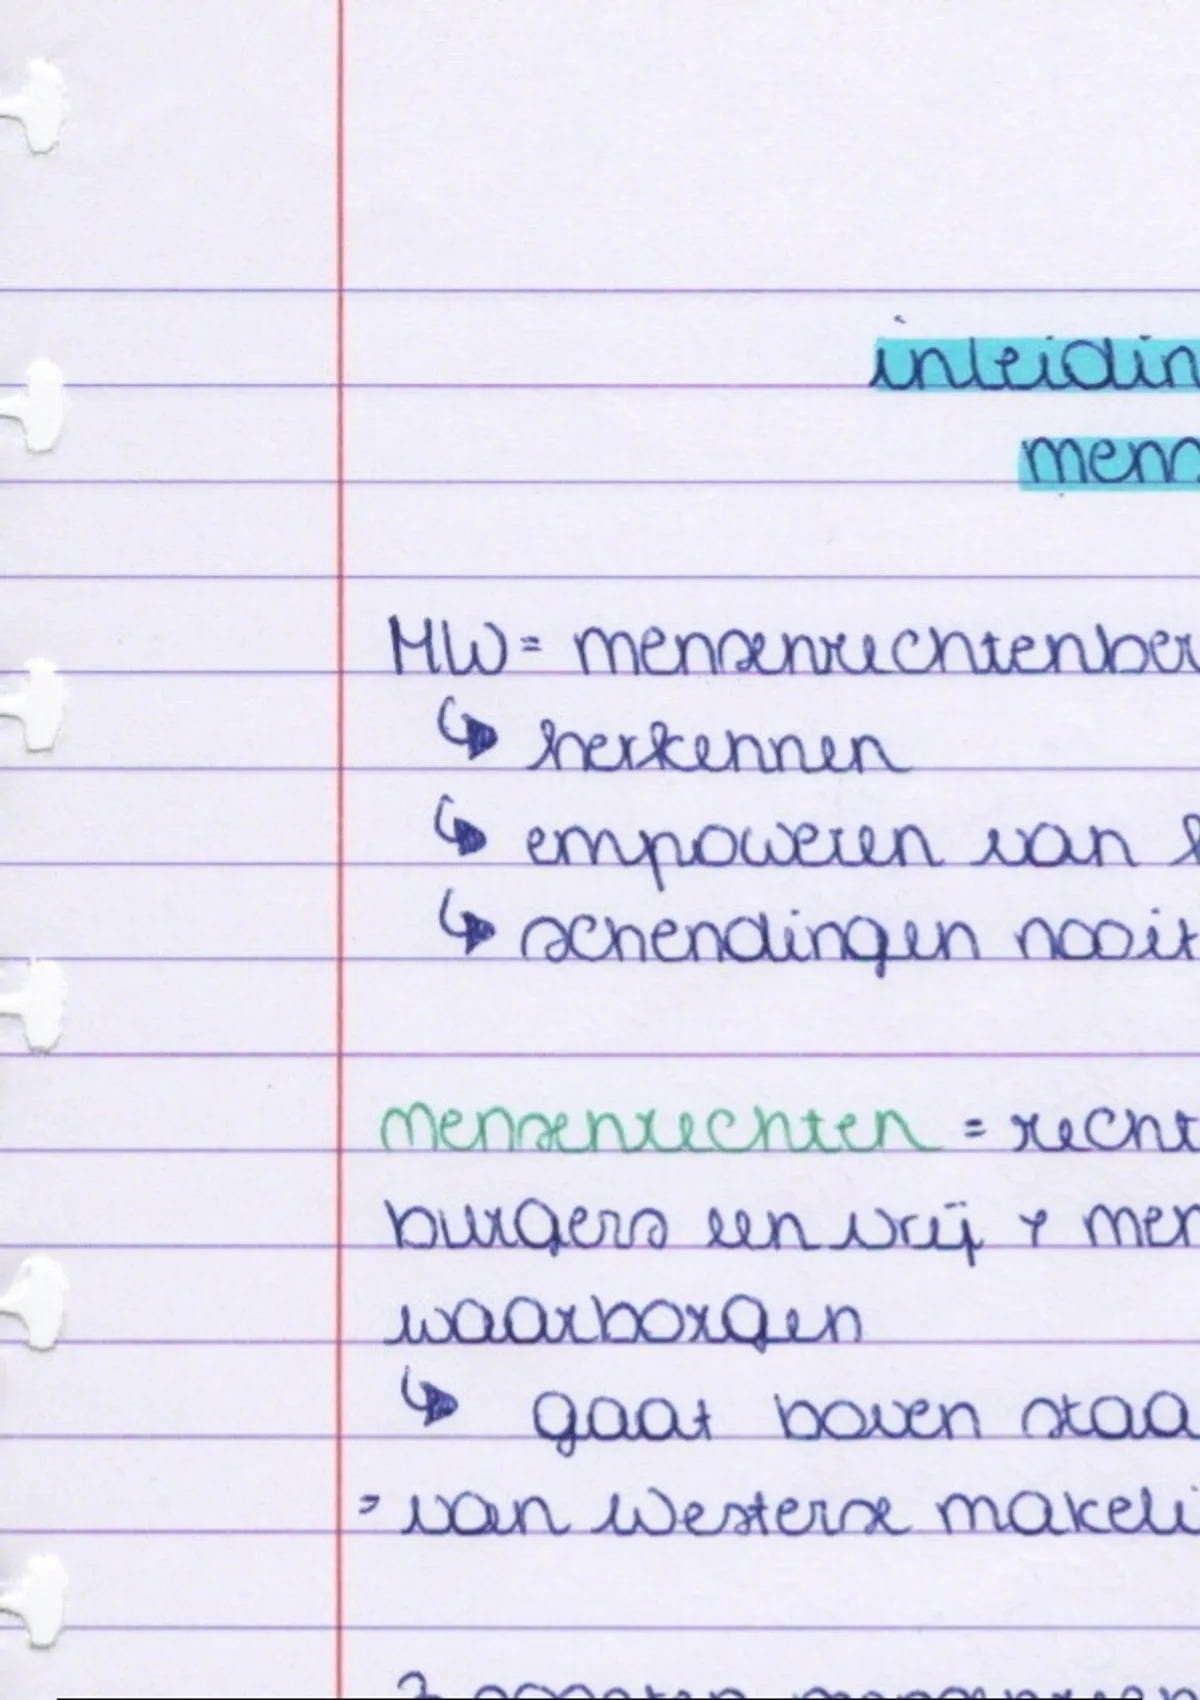 inleidin
mens
MW = mensenrechtenber
↳ herkennen
↳ empoweren van
↳ schendingen nooit
mensenrechten = recht
burgers een vrij + men
waarborgen
↳ gaat boven staa
= van Westerse makeli